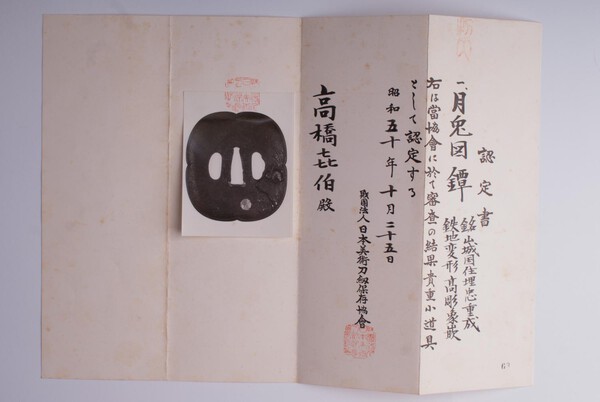 認定書
一、月兎図鐔
銘山城国住埋忠重成
鉄地変形高彫象嵌
右は當協會に於て審査の結果貴重小道具
として認定する
昭和五十年十月二十五日
財団法人日本美術刀剣保存協會
高橋㐂伯殿